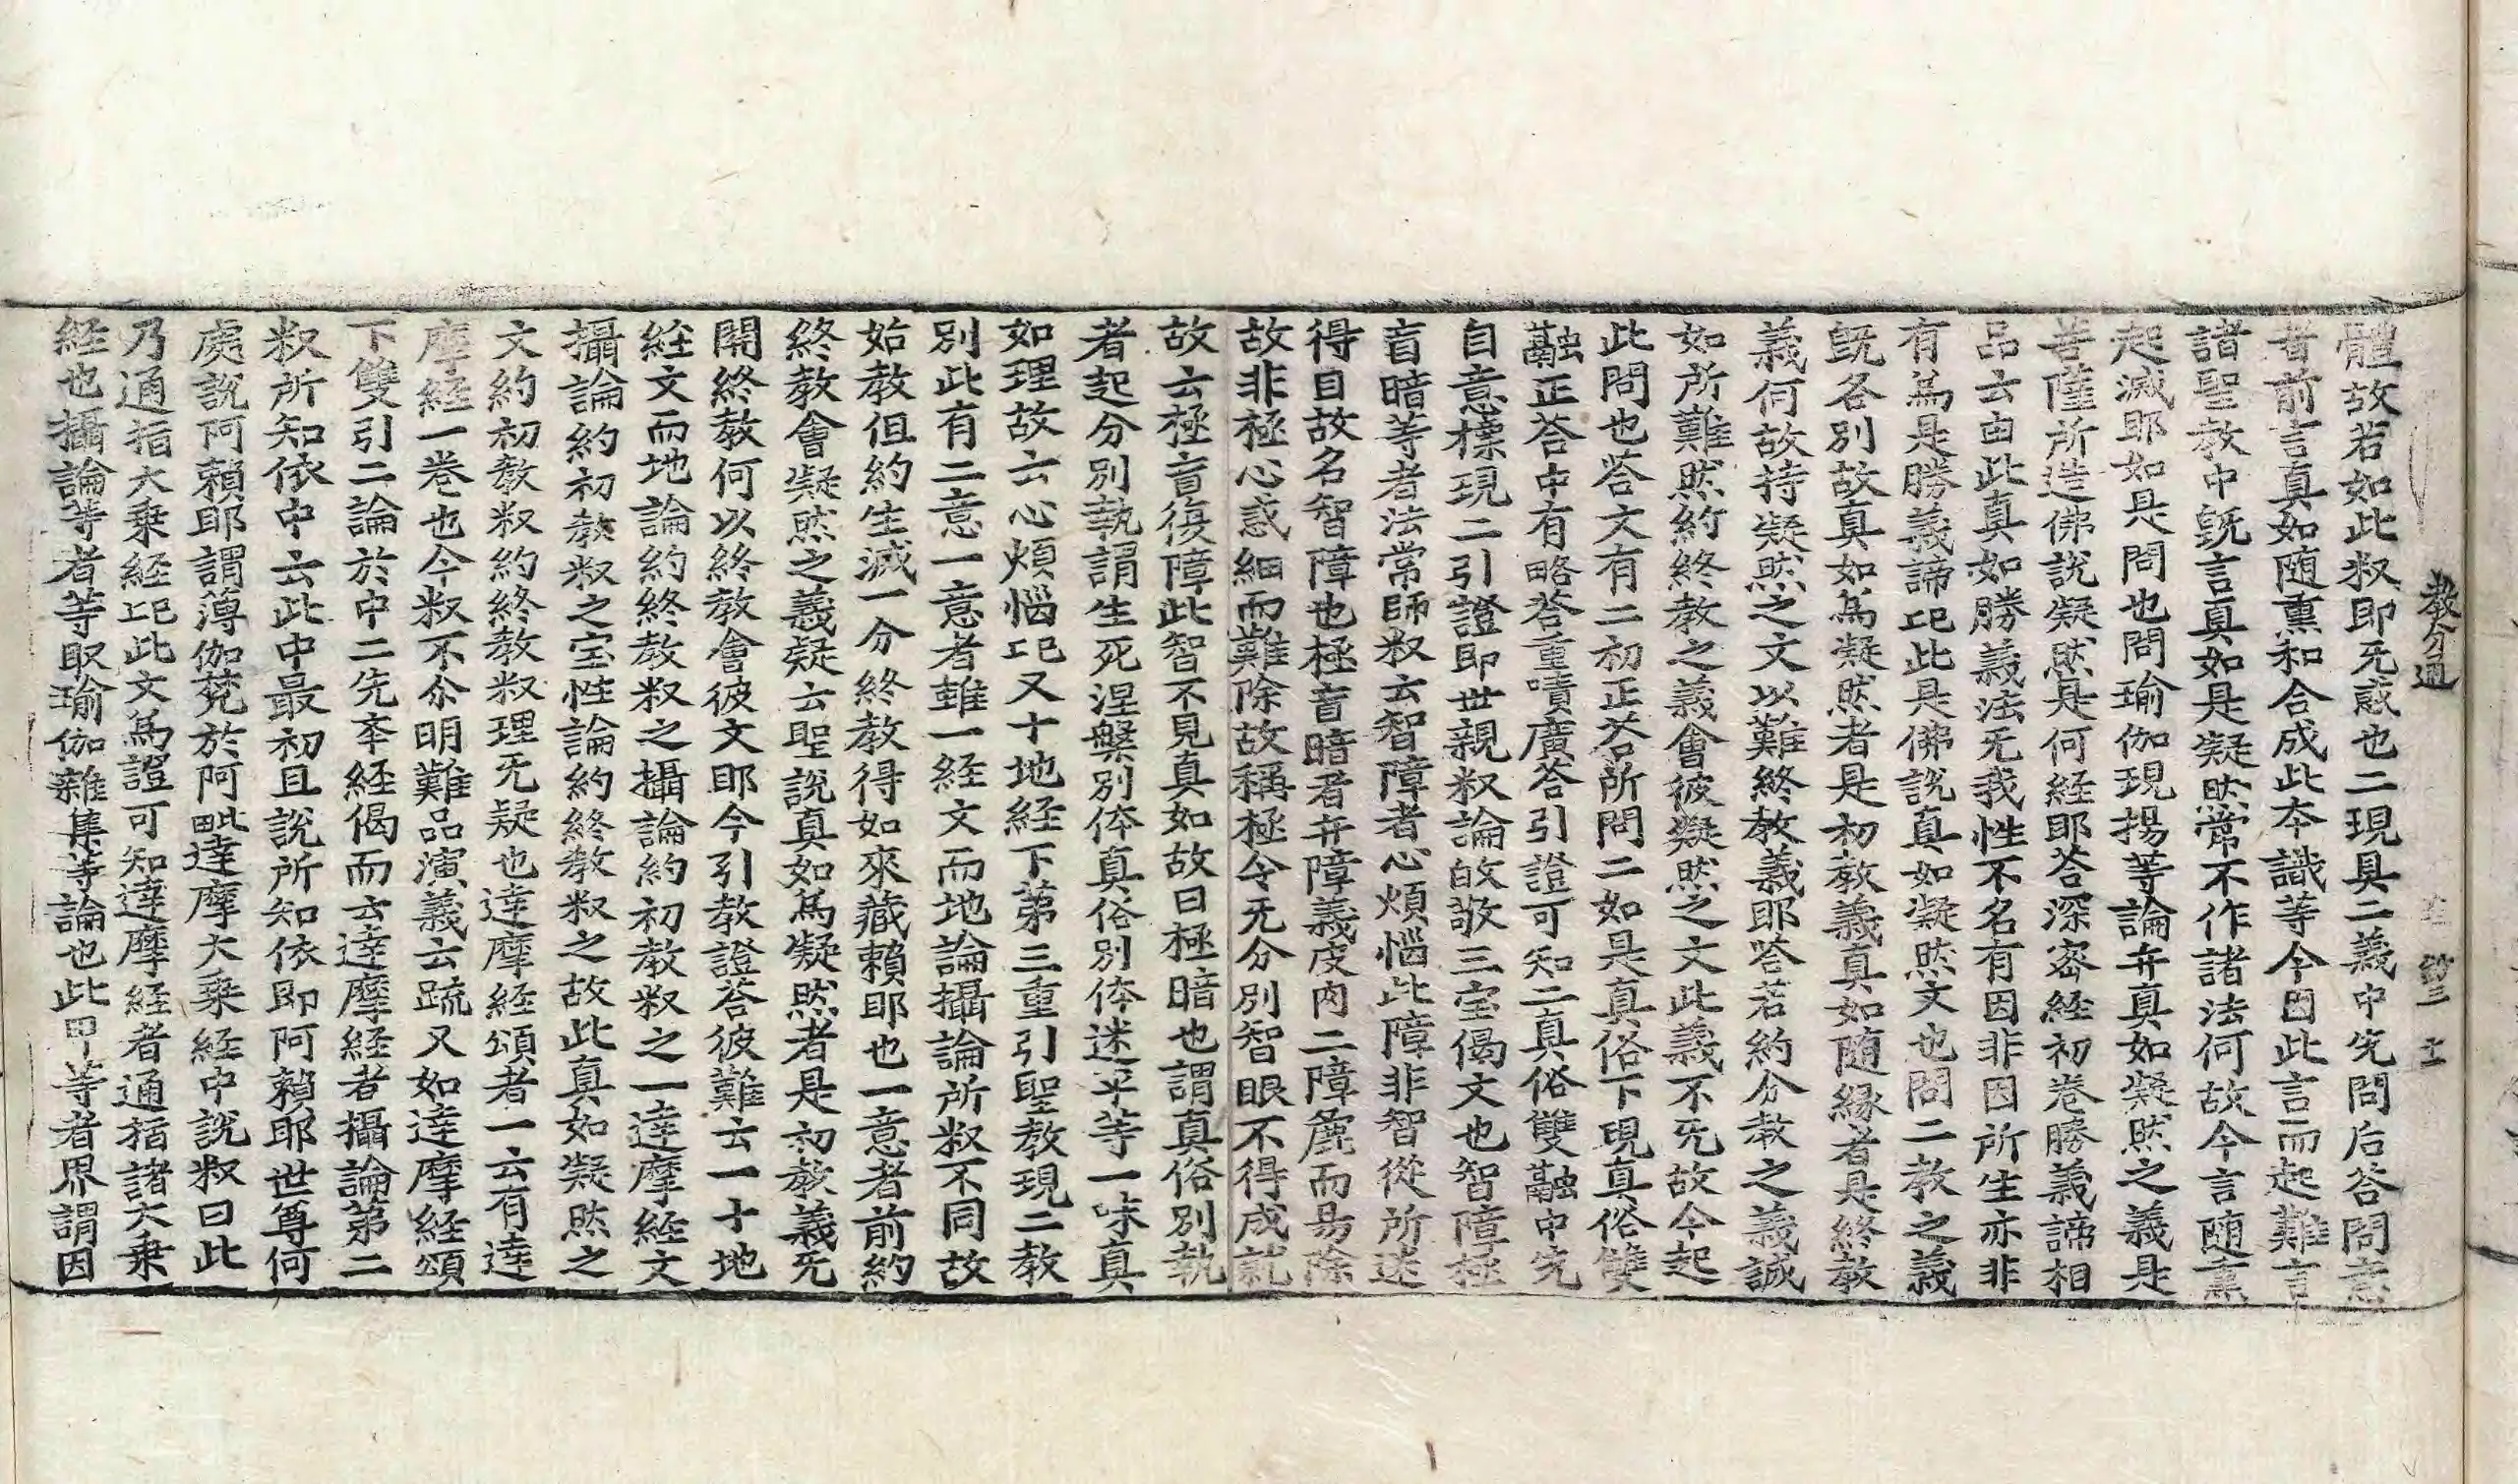 教分通 卷 第三 十一
體故若如此㕘即旡惑也二現具二義中先問后荅問意
者前言真如随熏和合成此夲識等今因此言而起難言
諸聖教中旣言真如是凝然常不作諸法何故今言随熏
起滅耶如是問也問瑜伽現揚等論弁真如凝然之義是
菩薩所造佛說凝然是何経耶荅深密経初卷勝義諦相
品云由此真如勝義法旡我性不名有因非因所生亦非
有爲是勝義諦巳此是佛說真如凝然文也問二教之義
旣各別故真如爲凝然者是初教義真如随縁者是終教
義何故持凝然之文以難終教義耶荅若約分教之義誠
如所難然約終教之義會彼凝然之文此義不旡故今起
此問也荅文有二初正荅所問二如是真俗下現真俗雙
融正荅中有略荅重嘖廣荅引證可知二真俗雙融中先
自意標現二引證即世親㕘論故敬三宝偈文也智障極
盲暗等者法常師㕘云智障者心煩惱此障非智從所迷
得目故名智障也極盲暗者弁障義皮肉二障麁而易除
故非極心惑細而難除故稱極令旡分別智眼不得成就
故云極盲復障此智不見真如故曰極暗也謂真俗別執
者起分別執謂生死涅槃別体真俗別体迷平等一味真
如理故云心煩惱巳又十地経下第三重引聖教現二教
別此有二意一意者雖一経文而地論攝論所㕘不同故
始教但約生滅一分終教得如來藏賴耶也一意者前約
終教會凝然之義疑云聖說真如爲凝然者是初教義旡
開終教何以終教會彼文耶今引教證荅彼難云一十地
経文而地論約終教㕘之攝論約初教㕘之一達摩経文
攝論約初教㕘之宝性論約終教㕘之故此真如凝然之
文約初教㕘約終教㕘理旡疑也達摩経頌者一云有達
摩経一卷也今㕘不分明難品演義云䟽又如達摩経頌
下雙引二論於中二先夲経偈而云達摩経者攝論第二
㕘所知依中云此中最初且說所知依即阿賴耶世尊何
處說阿賴耶謂薄伽䒢於阿毗達摩大乗経中說㕘曰此
乃通指大乗経巳此文爲證可知達摩経者通指諸大乗
経也攝論等者等取瑜伽雜集等論也此甲等者界謂因